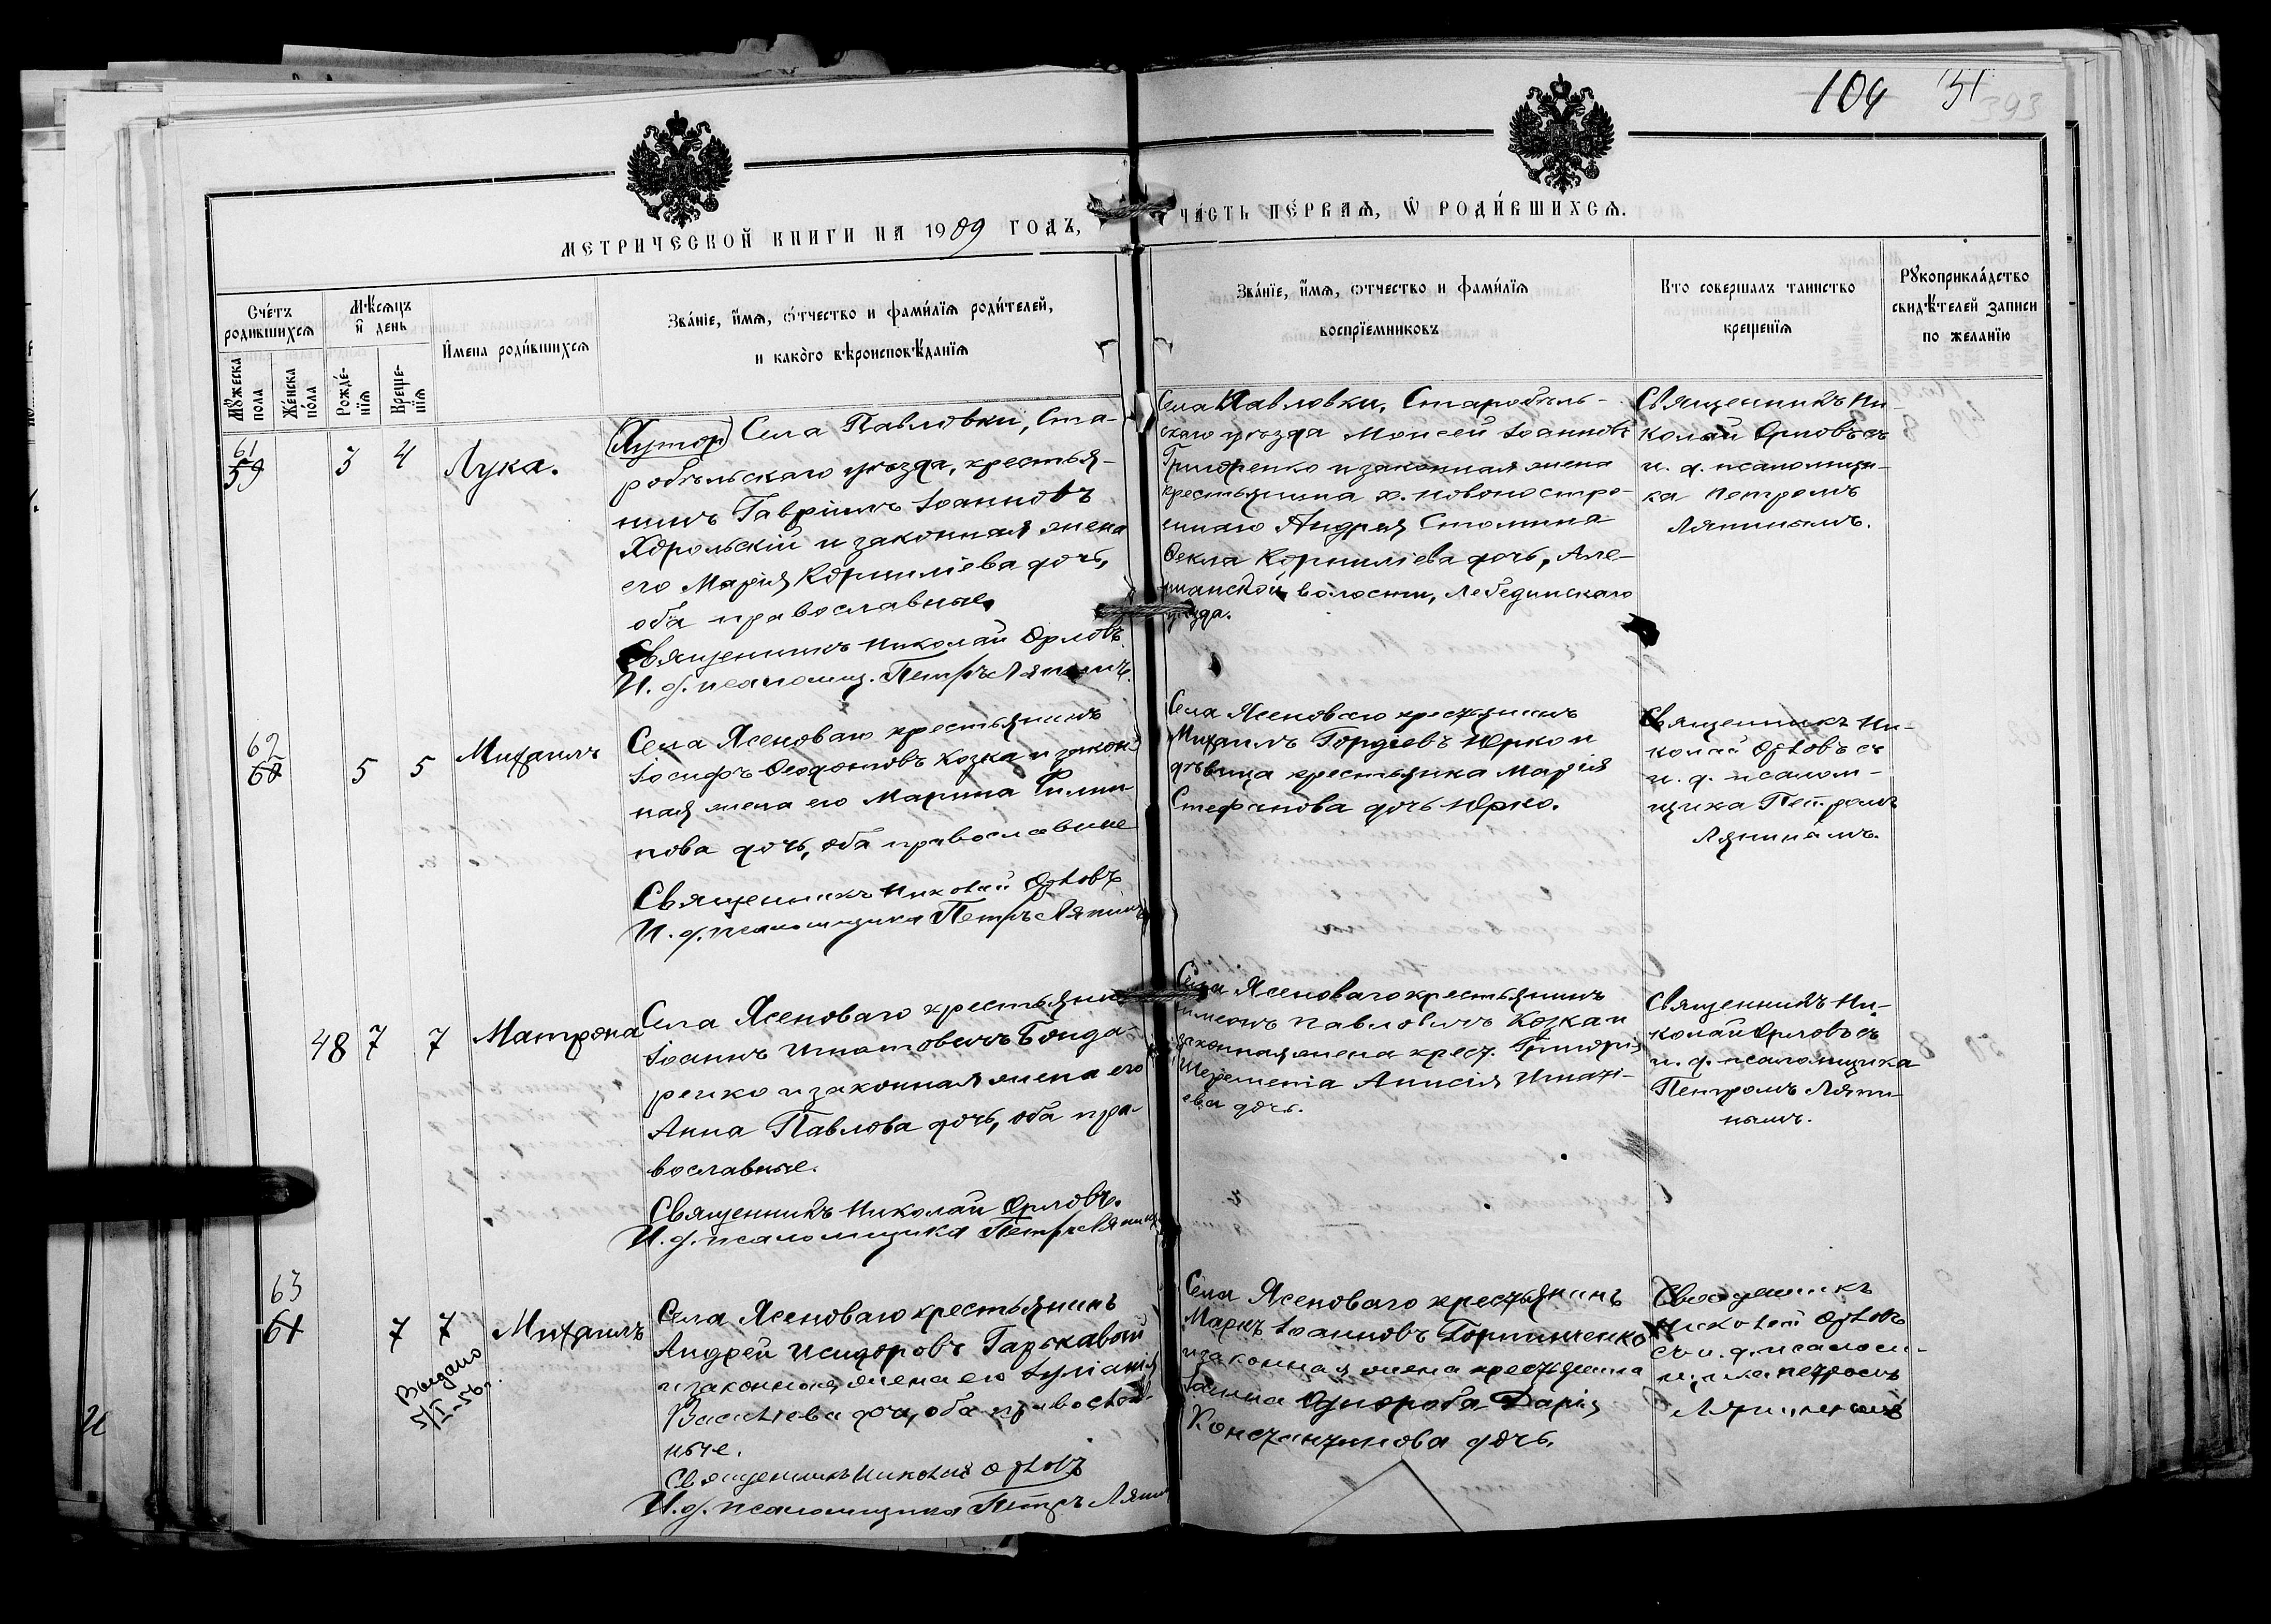 104 51
393
МЕТРИЧЕСКОЙ КНИГИ НА 1909 ГОДЪ,
ЧА́СТЬ ПЕ́РВАЯ, Ѡ РОДИ́ВШИХСЯ.
Сче́тъ родившихся
Мꙋжеска пола
Же́нска по́ла
Мѣсяцъ и день
Рожде́нїя
Креще́нїя
И҆мена роди́вшихся
Зва́нїе, и҆́мя, ѻ҆́тчество и фами́лїя роди́телей,
и како́го вѣроисповѣ́данїя
Зва́нїе, и҆́мя, ѻ҆тчество и фами́лїя
воспрїе́мниковъ
Кто совершалъ таинство
креще́нїя
Рꙋкоприкла́дство
свидѣ́телей записи
по жела́нїю
61
59
3 4
Лука.
(Хутор) Села Павловки, Ста-
робѣльскаго уѣзда, крестья-
нинъ Гавріилъ Іоанновъ
Хорольскій и законная жена
его Марія Корниліева дочь,
оба православные.
Священникъ Николай Орловъ
И. д. псаломщ. Петръ Ляпинъ.
Села Павловки, Старобѣль-
скаго уѣзда Моисей Іоанновъ
Григоренко и законная жена
крестьянина х. Новопостро-
еннаго Андрея Стомина
Ѳекла Корниліева дочь, Але-
волости, Лебединскаго
уѣзда.
Священникъ Ни-
колай Орловъ съ
и. д. псаломщи-
ка Петромъ
Ляпинымъ.
62
60
5 5
Михаилъ
Села Ясеноваго крестьянинъ
Іосифъ Ѳеодотовъ Козка и закон-
ная жена его Марина Филип-
пова дочь, оба православные
Священникъ Николай Орловъ
И. д. псаломщика Петръ Ляпинъ
Села Ясеноваго крестьянинъ
Михаилъ Гордіевъ Юрко и
дѣвица крестьянка Марія
Стефанова дочь Юрко.
Священникъ Ни-
колай Орловъ съ
и. д. псалом-
щика Петромъ
Ляпинымъ.
48 7 7
Матрона
Села Ясеноваго крестьянинъ
Іоаннъ Игнатовичъ Бонда-
ренко и законная жена его
Анна Павлова дочь, оба пра-
вославные.
Священникъ Николай Орловъ.
И. д. псаломщика Петръ Ляпинъ
Села Ясеноваго крестьянинъ
Павловичъ Козка и
законная жена крест. Григорія
Шеремета Анисія Игнаті-
ева дочь.
Священникъ Ни-
колай Орловъ съ
и. д. псаломщика
Петромъ Ляпи-
нымъ.
63
61
7 7
Выдано
5/I-56 г.
Михаилъ
Села Ясеноваго крестьянинъ
Андрей Исидоровъ Гаркавый
и законная жена его Іуліанія
Васильева дочь, оба православ-
ные.
Священникъ Николай Орловъ
И. д. псаломщика Петръ Ляпинъ
Села Ясеноваго крестьянинъ
Маркъ Іоанновъ
и законная жена крестьянина
Іоанна Однороба Дарія
Константинова дочь.
Священникъ
Николай Орловъ
съ и. д. псалом-
щика Петромъ
Ляпинымъ
И